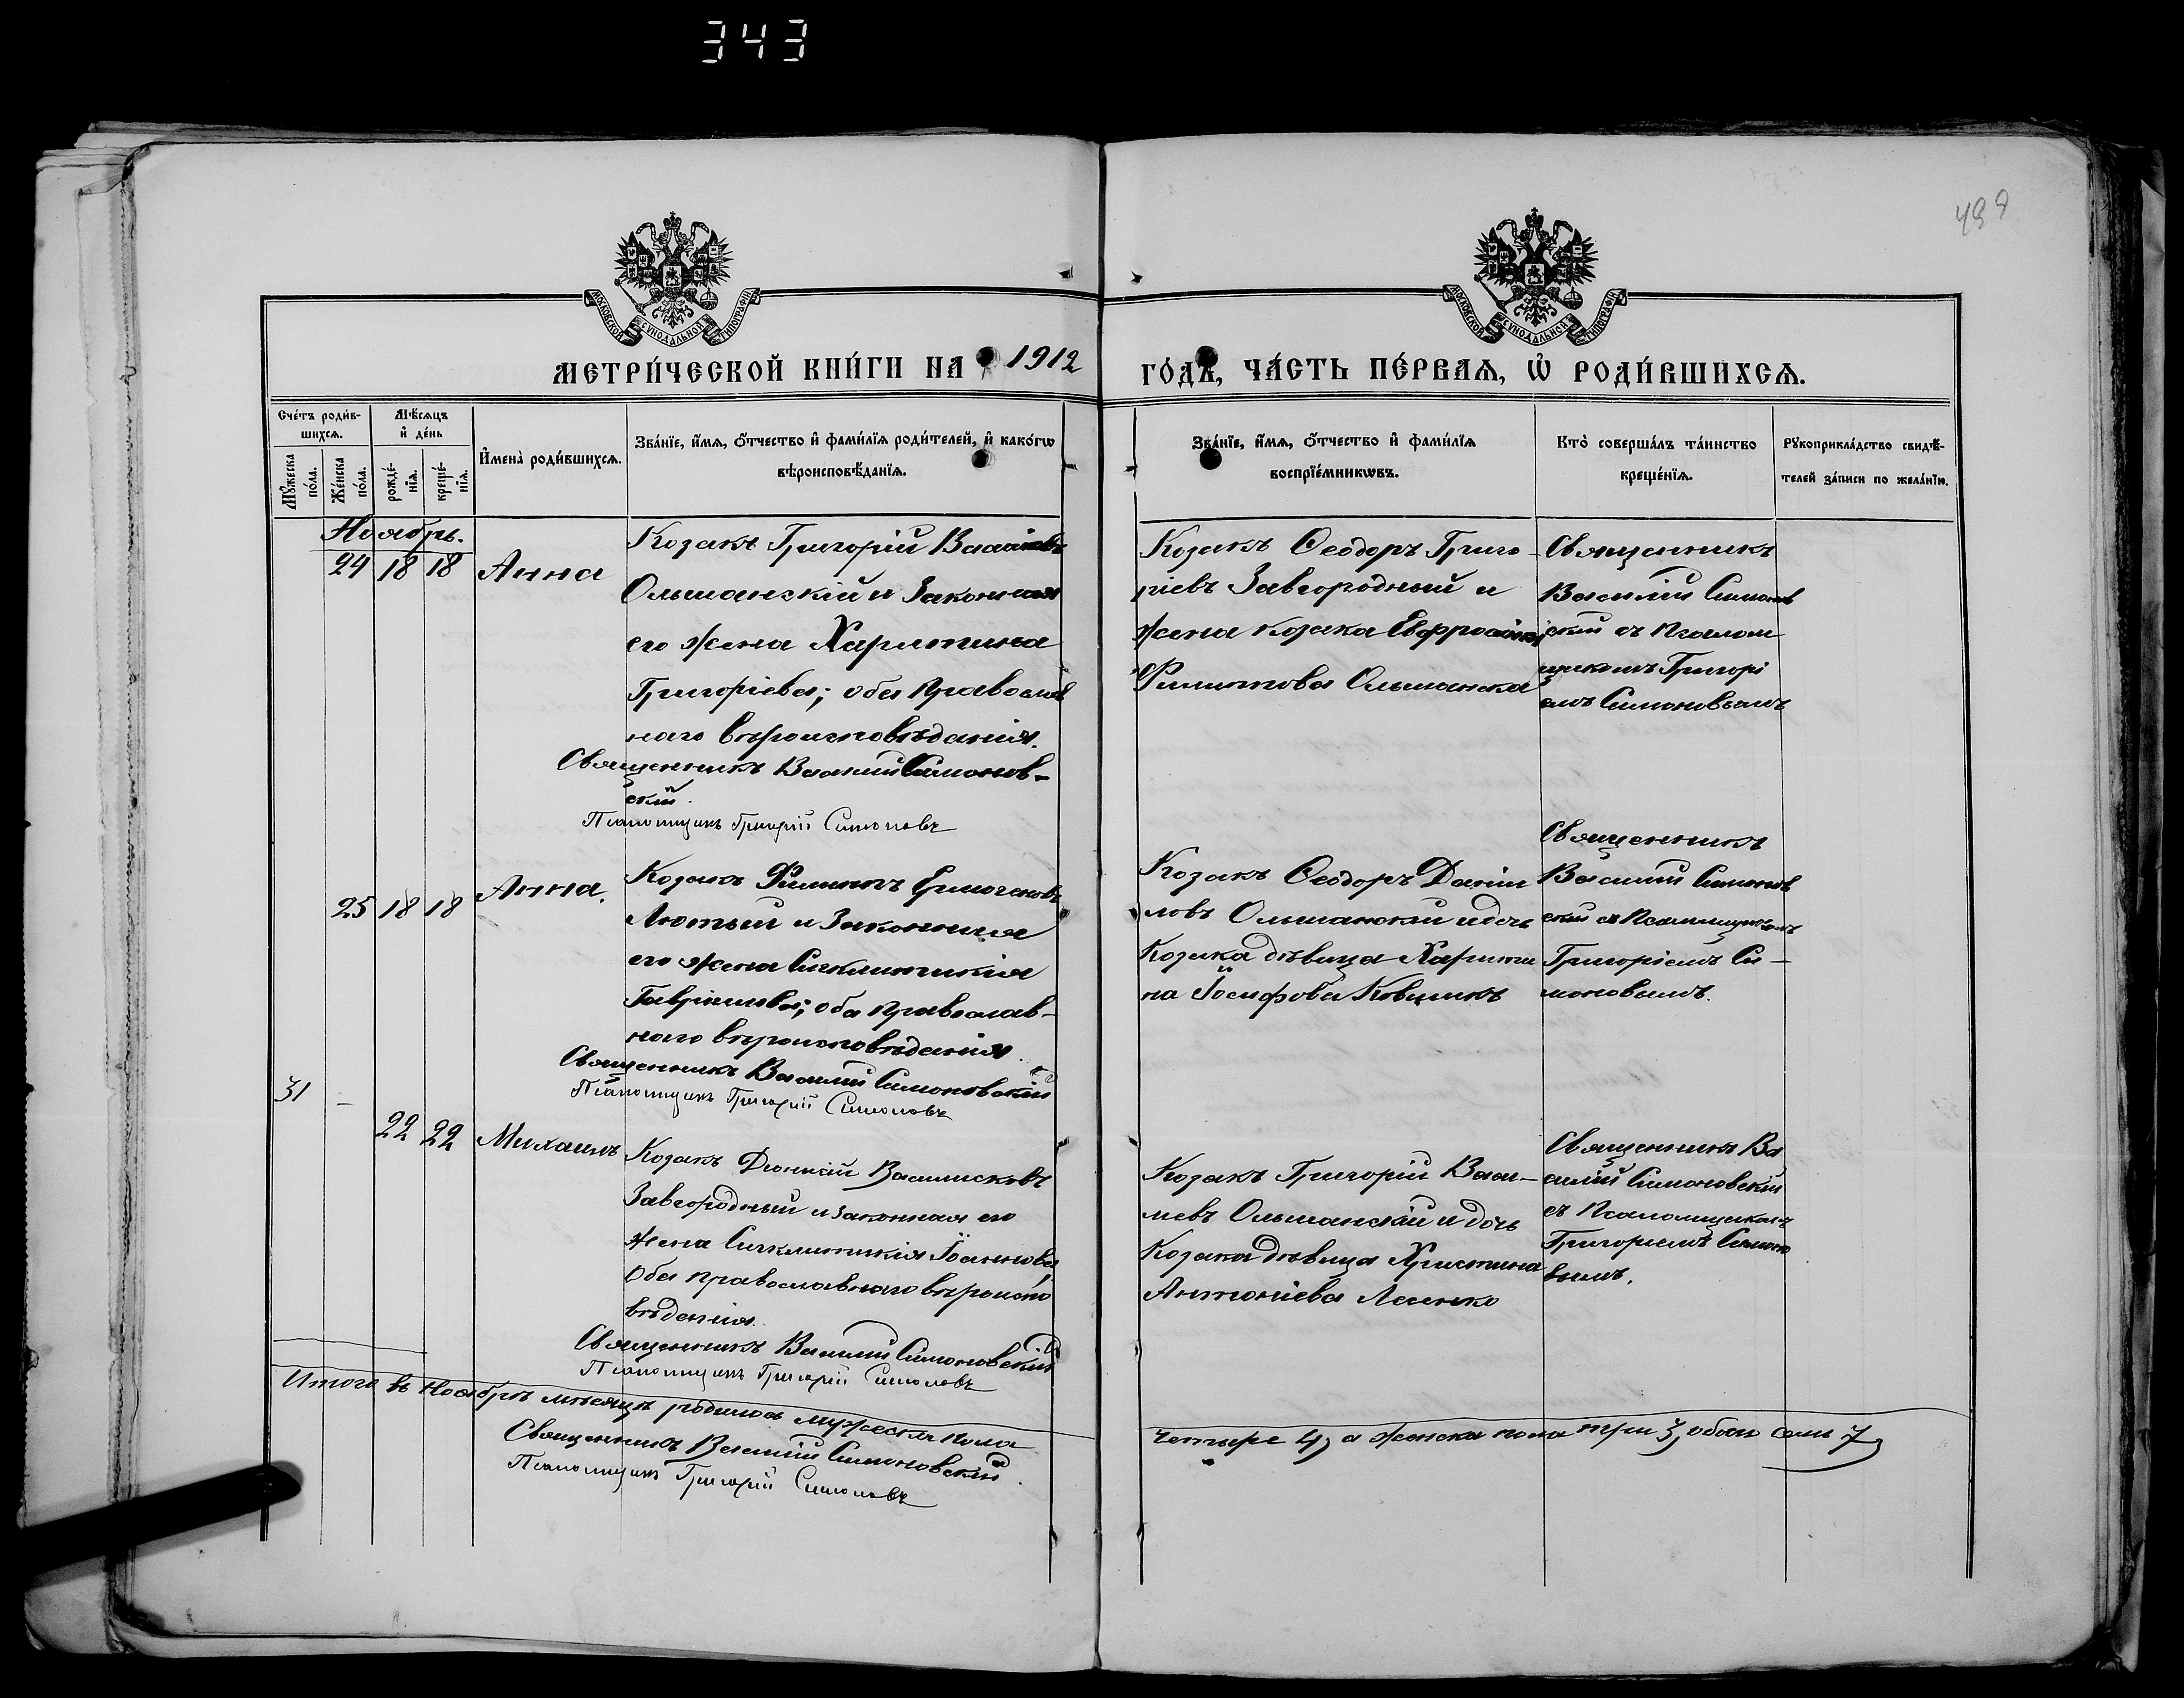 343
499
МОСКОВСКОЙ СѴНОДАЛЬНОЙ ТИПОГРАФІИ
МОСКОВСКОЙ СѴНОДАЛЬНОЙ ТИПОГРАФІИ
МЕТРИ́ЧЕСКОЙ КНИ́ГИ НА 1912 ГО́ДЪ, ЧА́СТЬ ПЕ́РВАѦ, Ѡ РОДИ́ВШИХСѦ.
Сче́тъ роди́в-
шихсѧ.
Мꙋ́жеска
по́ла.
Же́нска
по́ла.
Мѣ́сѧцъ
и҆ де́нь
рожде́-
нїѧ.
креще́-
нїѧ.
И҆мена̀ роди́вшихсѧ.
Зва́нїе, и҆́мѧ, ѻ҆́тчество и҆ фами́лїѧ роди́телей, и҆ како́гѡ
вѣроисповѣ́данїѧ.
Зва́нїе, и҆́мѧ, ѻ҆́тчество и҆ фами́лїѧ
воспрїе́мникѡвъ.
Кто̀ соверша́лъ та́инство
креще́нїѧ.
Рꙋкоприкла́дство свидѣ́-
телей за́писи по жела́нїю.
Ноябрь.
24 18 18 Анна
Козакъ Григорій Василіевъ
Ольшанскій и Законная
его жена Харитина
Григоріева; оба Православ
наго вѣроисповѣданія.
Священникъ Василій Симонов-
скій.
Псаломщикъ Григорій Симоновъ
Козакъ Ѳеодоръ Григо-
ріевъ Завгородный и
жена козака Евфросинія
Филиппова Ольшанска
Священникъ
Василій Симонов
скій съ Псалом
щикомъ Григорі
емъ Симоновымъ
25 18 18 Анна.
Козакъ Филиппъ
Лютый и Законная
его жена Сигклитикія
Гавріилова; оба Православ-
наго вѣроисповѣданія.
Священникъ Василій Симоновскій
Псаломщикъ Григорій Симоновъ
Козакъ Ѳеодоръ Даніи
ловъ Ольшанскій и дочь
Козака дѣвица Харити
на Іосифова
Священникъ
Василій Симонов
скій съ Псаломщикомъ
Григоріемъ Си-
моновымъ.
31 -
22 22 Михаилъ
Козакъ
Завгородный и законная его
жена Сигклитикія Іоаннова
Оба православнаго вѣроиспо
вѣданія.
Священникъ Василій Симоновскій
Псаломщикъ Григорій Симоновъ
Козакъ Григорій Васи-
лиевъ Ольшанскій и дочь
Козака дѣвица Христина
Антоніева
Священникъ Ва
силій Симоновскій
съ Псаломщикомъ
Григоріемъ Симоно
вымъ.
Итого въ Ноябрѣ мѣсяцѣ родилось мужеска пола
четыре 4, а женска пола три 3, обоихъ семь 7
Священникъ Василій Симоновскій.
Псаломщикъ Григорій Симоновъ